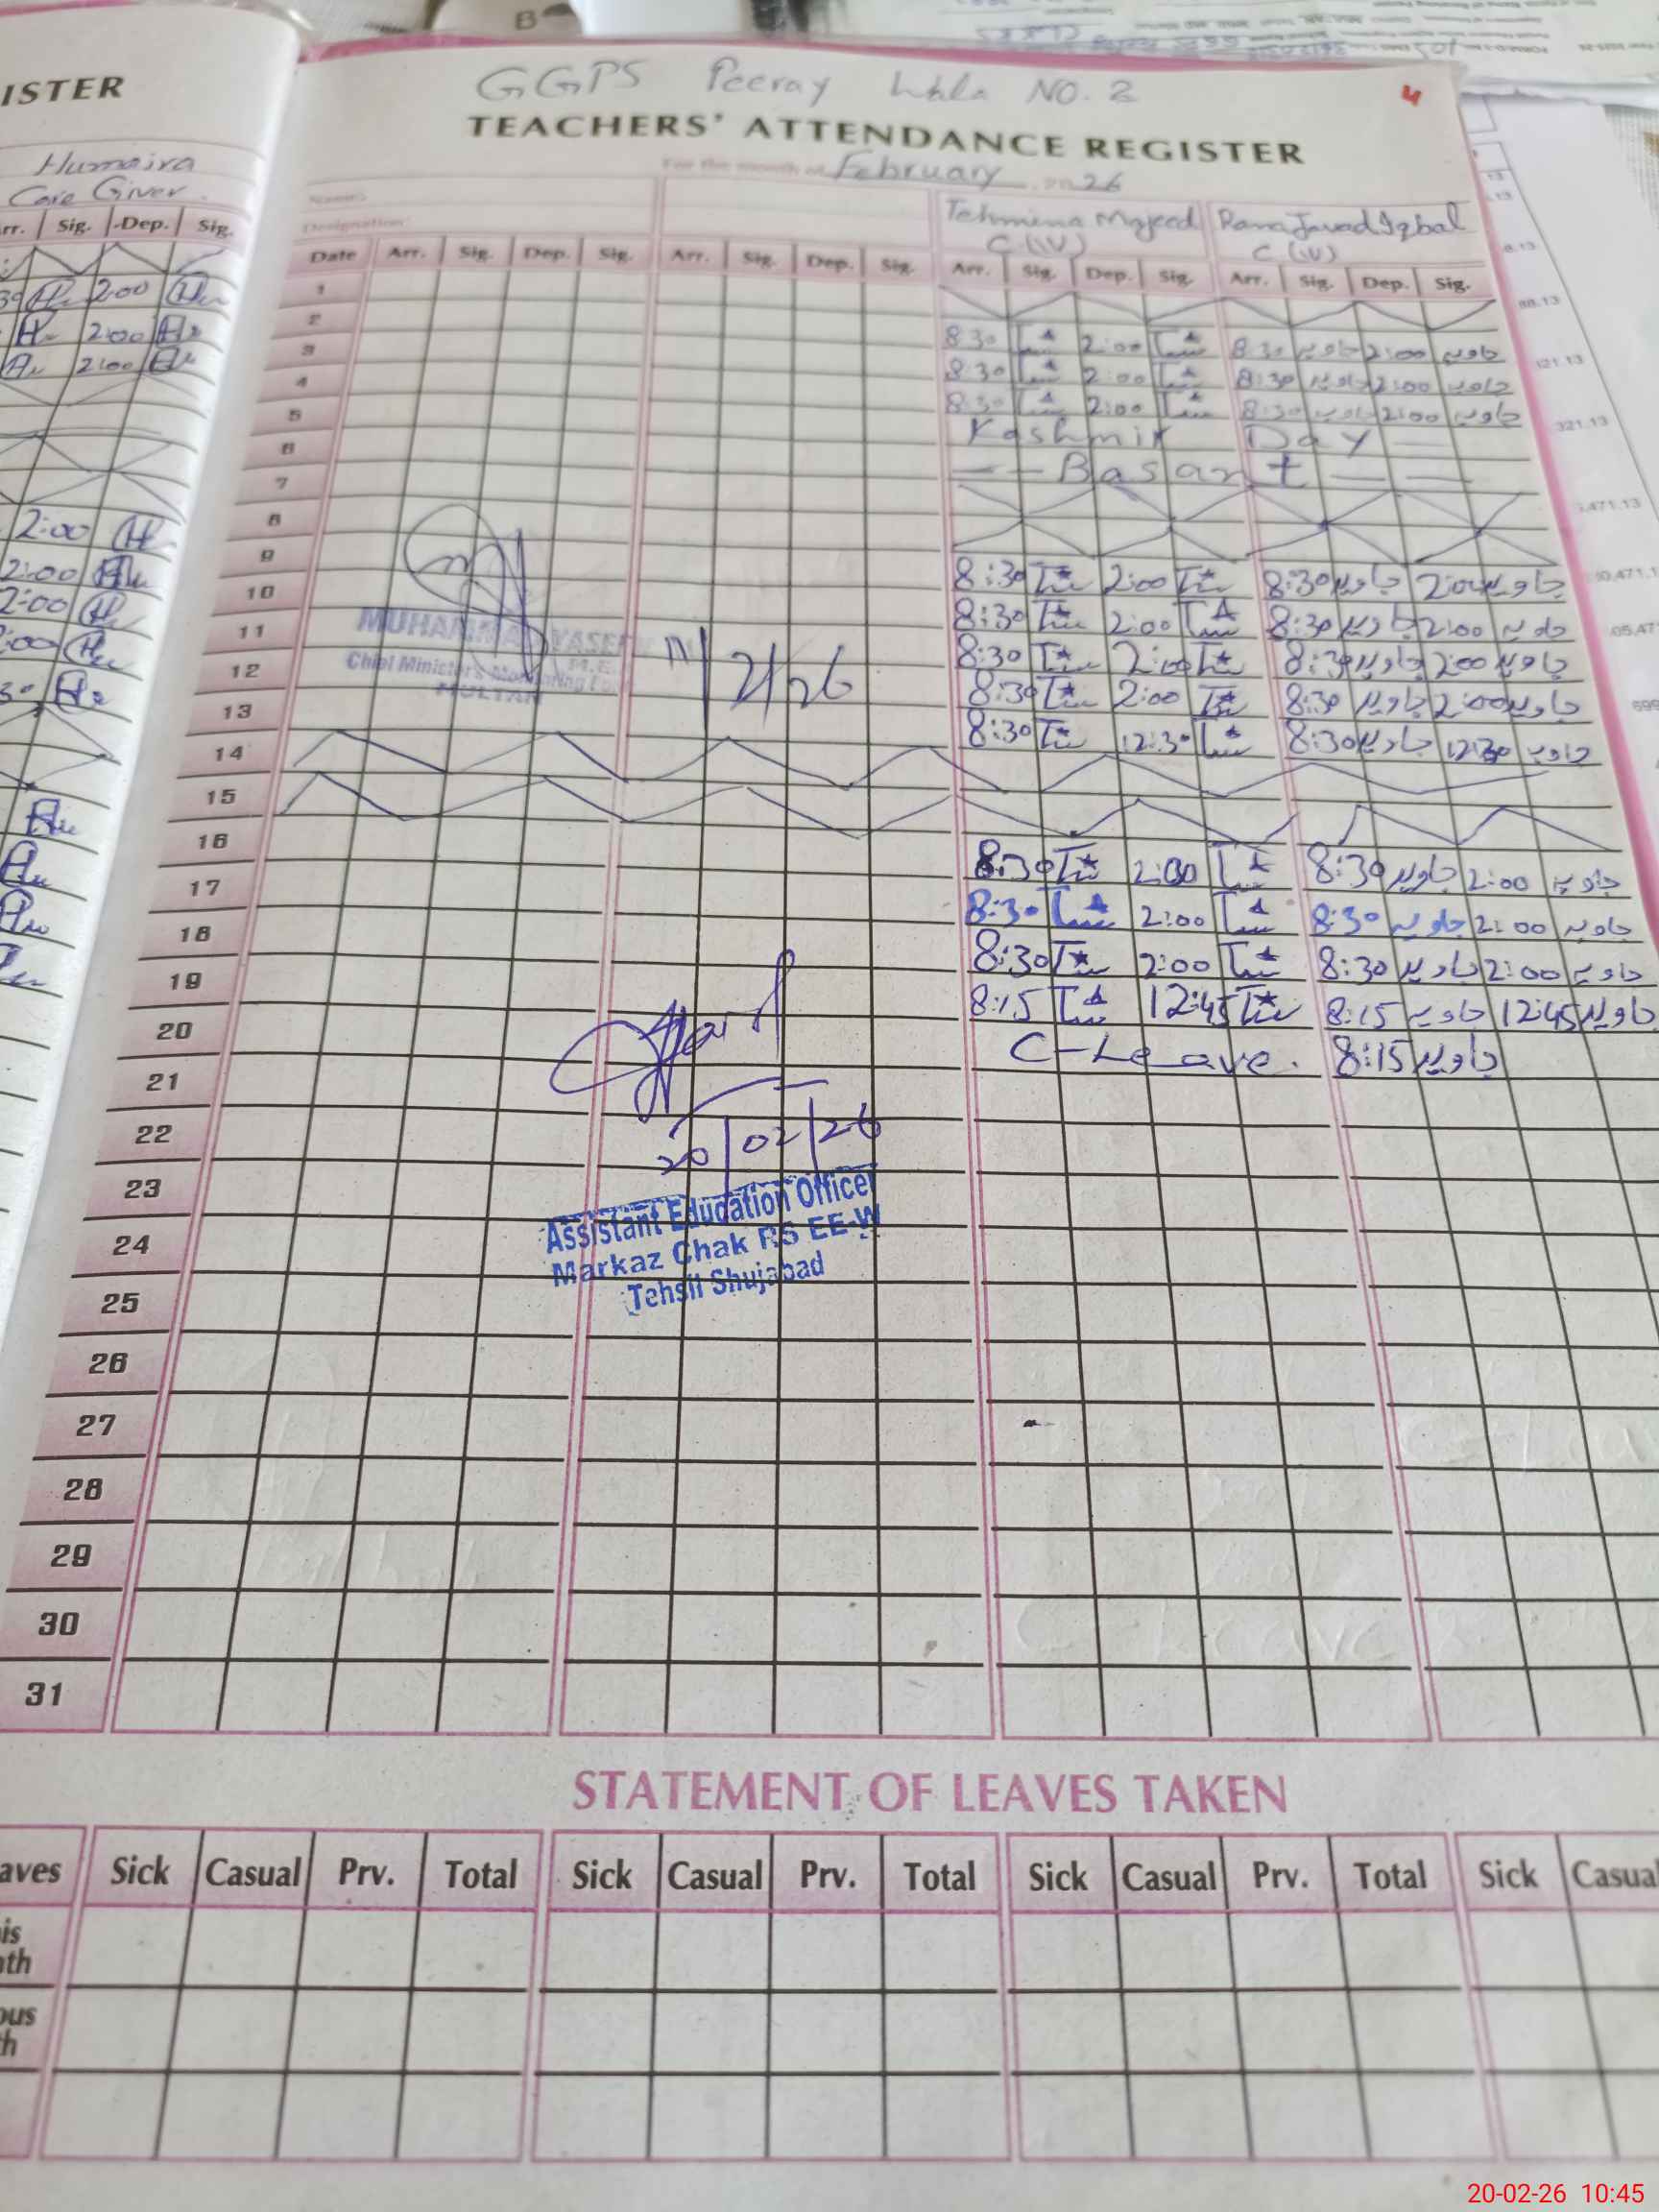 ISTER
Humaira
Care Giver
rr. Sig. Dep. Sig.
2:00
2:00
2:00
2:00
2:00
2:00
:00
30
GGPS Peeray Wala NO. 2
4
TEACHERS' ATTENDANCE REGISTER
For the month of February 2026
Name:
Tehmina Majeed Rana Javad Iqbal
Designation:
C (IV) C (IV)
Date Arr. Sig. Dep. Sig. Arr. Sig. Dep. Sig. Arr. Sig. Dep. Sig. Arr. Sig. Dep. Sig.
1
2 8:30 2:00 8:30 جاوید 2:00 جاوید
3 8:30 2:00 8:30 جاوید 2:00 جاوید
4 8:30 2:00 8:30 جاوید 2:00 جاوید
5 Kashmir Day
6 Basant
7
8
9 8:30 2:00 8:30 جاوید 2:00 جاوید
10 8:30 2:00 8:30 جاوید 2:00 جاوید
11 8:30 2:00 8:30 جاوید 2:00 جاوید
12 8:30 2:00 8:30 جاوید 2:00 جاوید
13 8:30 12:30 8:30 جاوید 12:30 جاوید
MUHAMMAD YASEEN
M.E.
Chief Minister's Monitoring
MULTAN
11/2/26
14
15
16 8:30 2:00 8:30 جاوید 2:00 جاوید
17 8:30 2:00 8:30 جاوید 2:00 جاوید
18 8:30 2:00 8:30 جاوید 2:00 جاوید
19 8:15 12:45 8:15 جاوید 12:45 جاوید
20 C-Leave. 8:15 جاوید
21
22
20/02/26
Assistant Education Officer
Markaz Chak RS EE-W
Tehsil Shujabad
23
24
25
26
27
28
29
30
31
STATEMENT OF LEAVES TAKEN
aves Sick Casual Prv. Total Sick Casual Prv. Total Sick Casual Prv. Total Sick Casua
is
th
ous
h
20-02-26 10:45